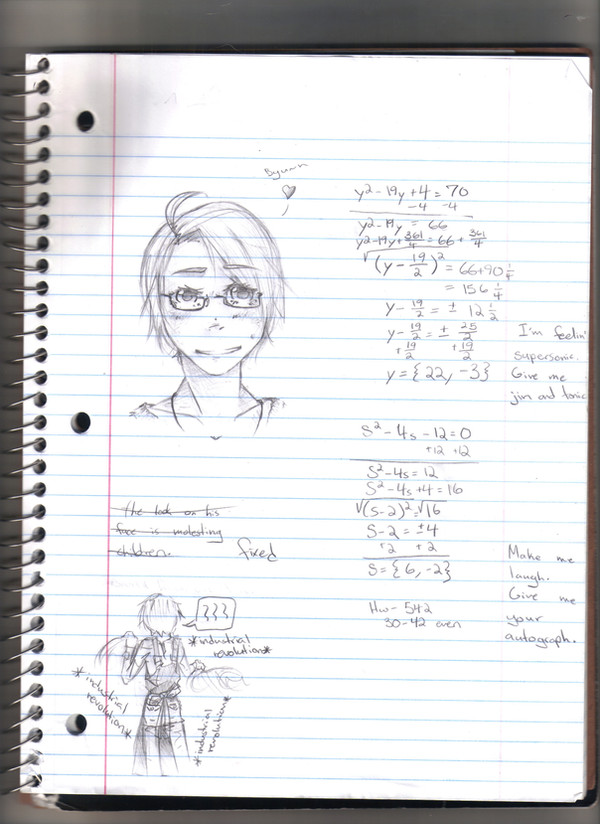 y² - 19y + 4 = 70
-4 -4
y² - 19y = 66
y² - 19y + 361/4 = 66 + 361/4
√(y - 19/2)² = 66 + 90 1/4
= 156 1/4
y - 19/2 = ± 12 1/2
y - 19/2 = ± 25/2
+ 19/2 + 19/2
y = {22, -3}
I'm feelin'
supersonic.
Give me
jin and tonic
S² - 4s - 12 = 0
+12 +12
S² - 4s = 12
S² - 4s + 4 = 16
√(S - 2)² = √16
S - 2 = ±4
+2 +2
S = {6, -2}
Hw - 542
30-42 even
Make me
laugh.
Give me
your
autograph.
the look on his
face is molesting
children.
fixed
}}}
*industrial
revolution*
*industrial
revolution*
*industrial
revolution*